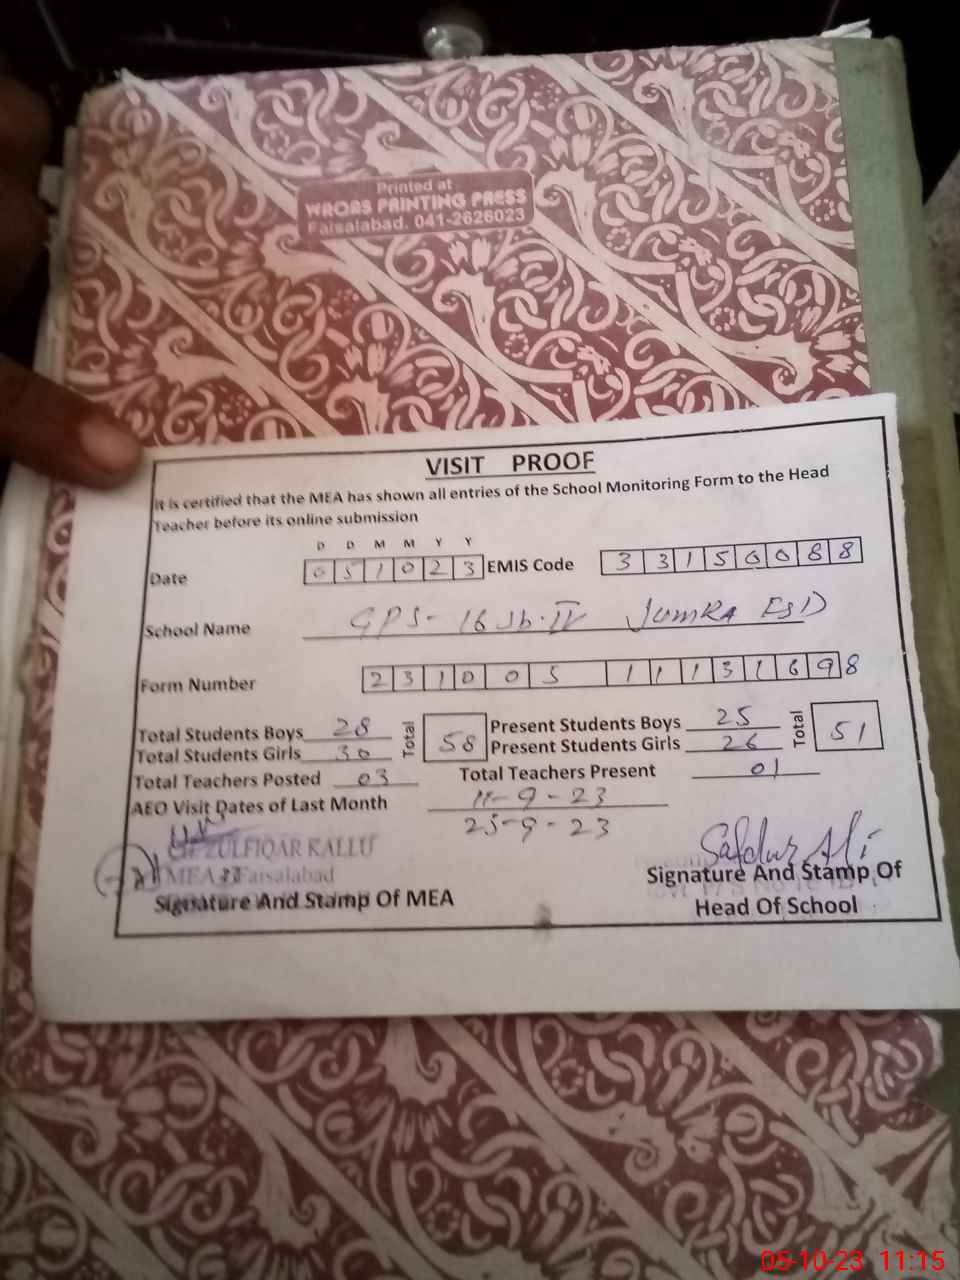 Printed at
WAQAS PRINTING PRESS
Faisalabad. 041-2626023
VISIT PROOF
It is certified that the MEA has shown all entries of the School Monitoring Form to the Head
Teacher before its online submission
D D M M Y Y
Date 051023 EMIS Code 33150088
School Name GPS- 16 Jb. IV JUMRA FSD
Form Number 231005 11131698
Total Students Boys 28 Total 58 Present Students Boys 25 Total 51
Total Students Girls 30 Present Students Girls 26
Total Teachers Posted 03 Total Teachers Present 01
AEO Visit Dates of Last Month 11-9-23
25-9-23
CH. ZULFIQAR KALLU
MEA Faisalabad
Signature And Stamp Of MEA
Safdar Ali
Signature And Stamp Of
Head Of School
05-10-23 11:15